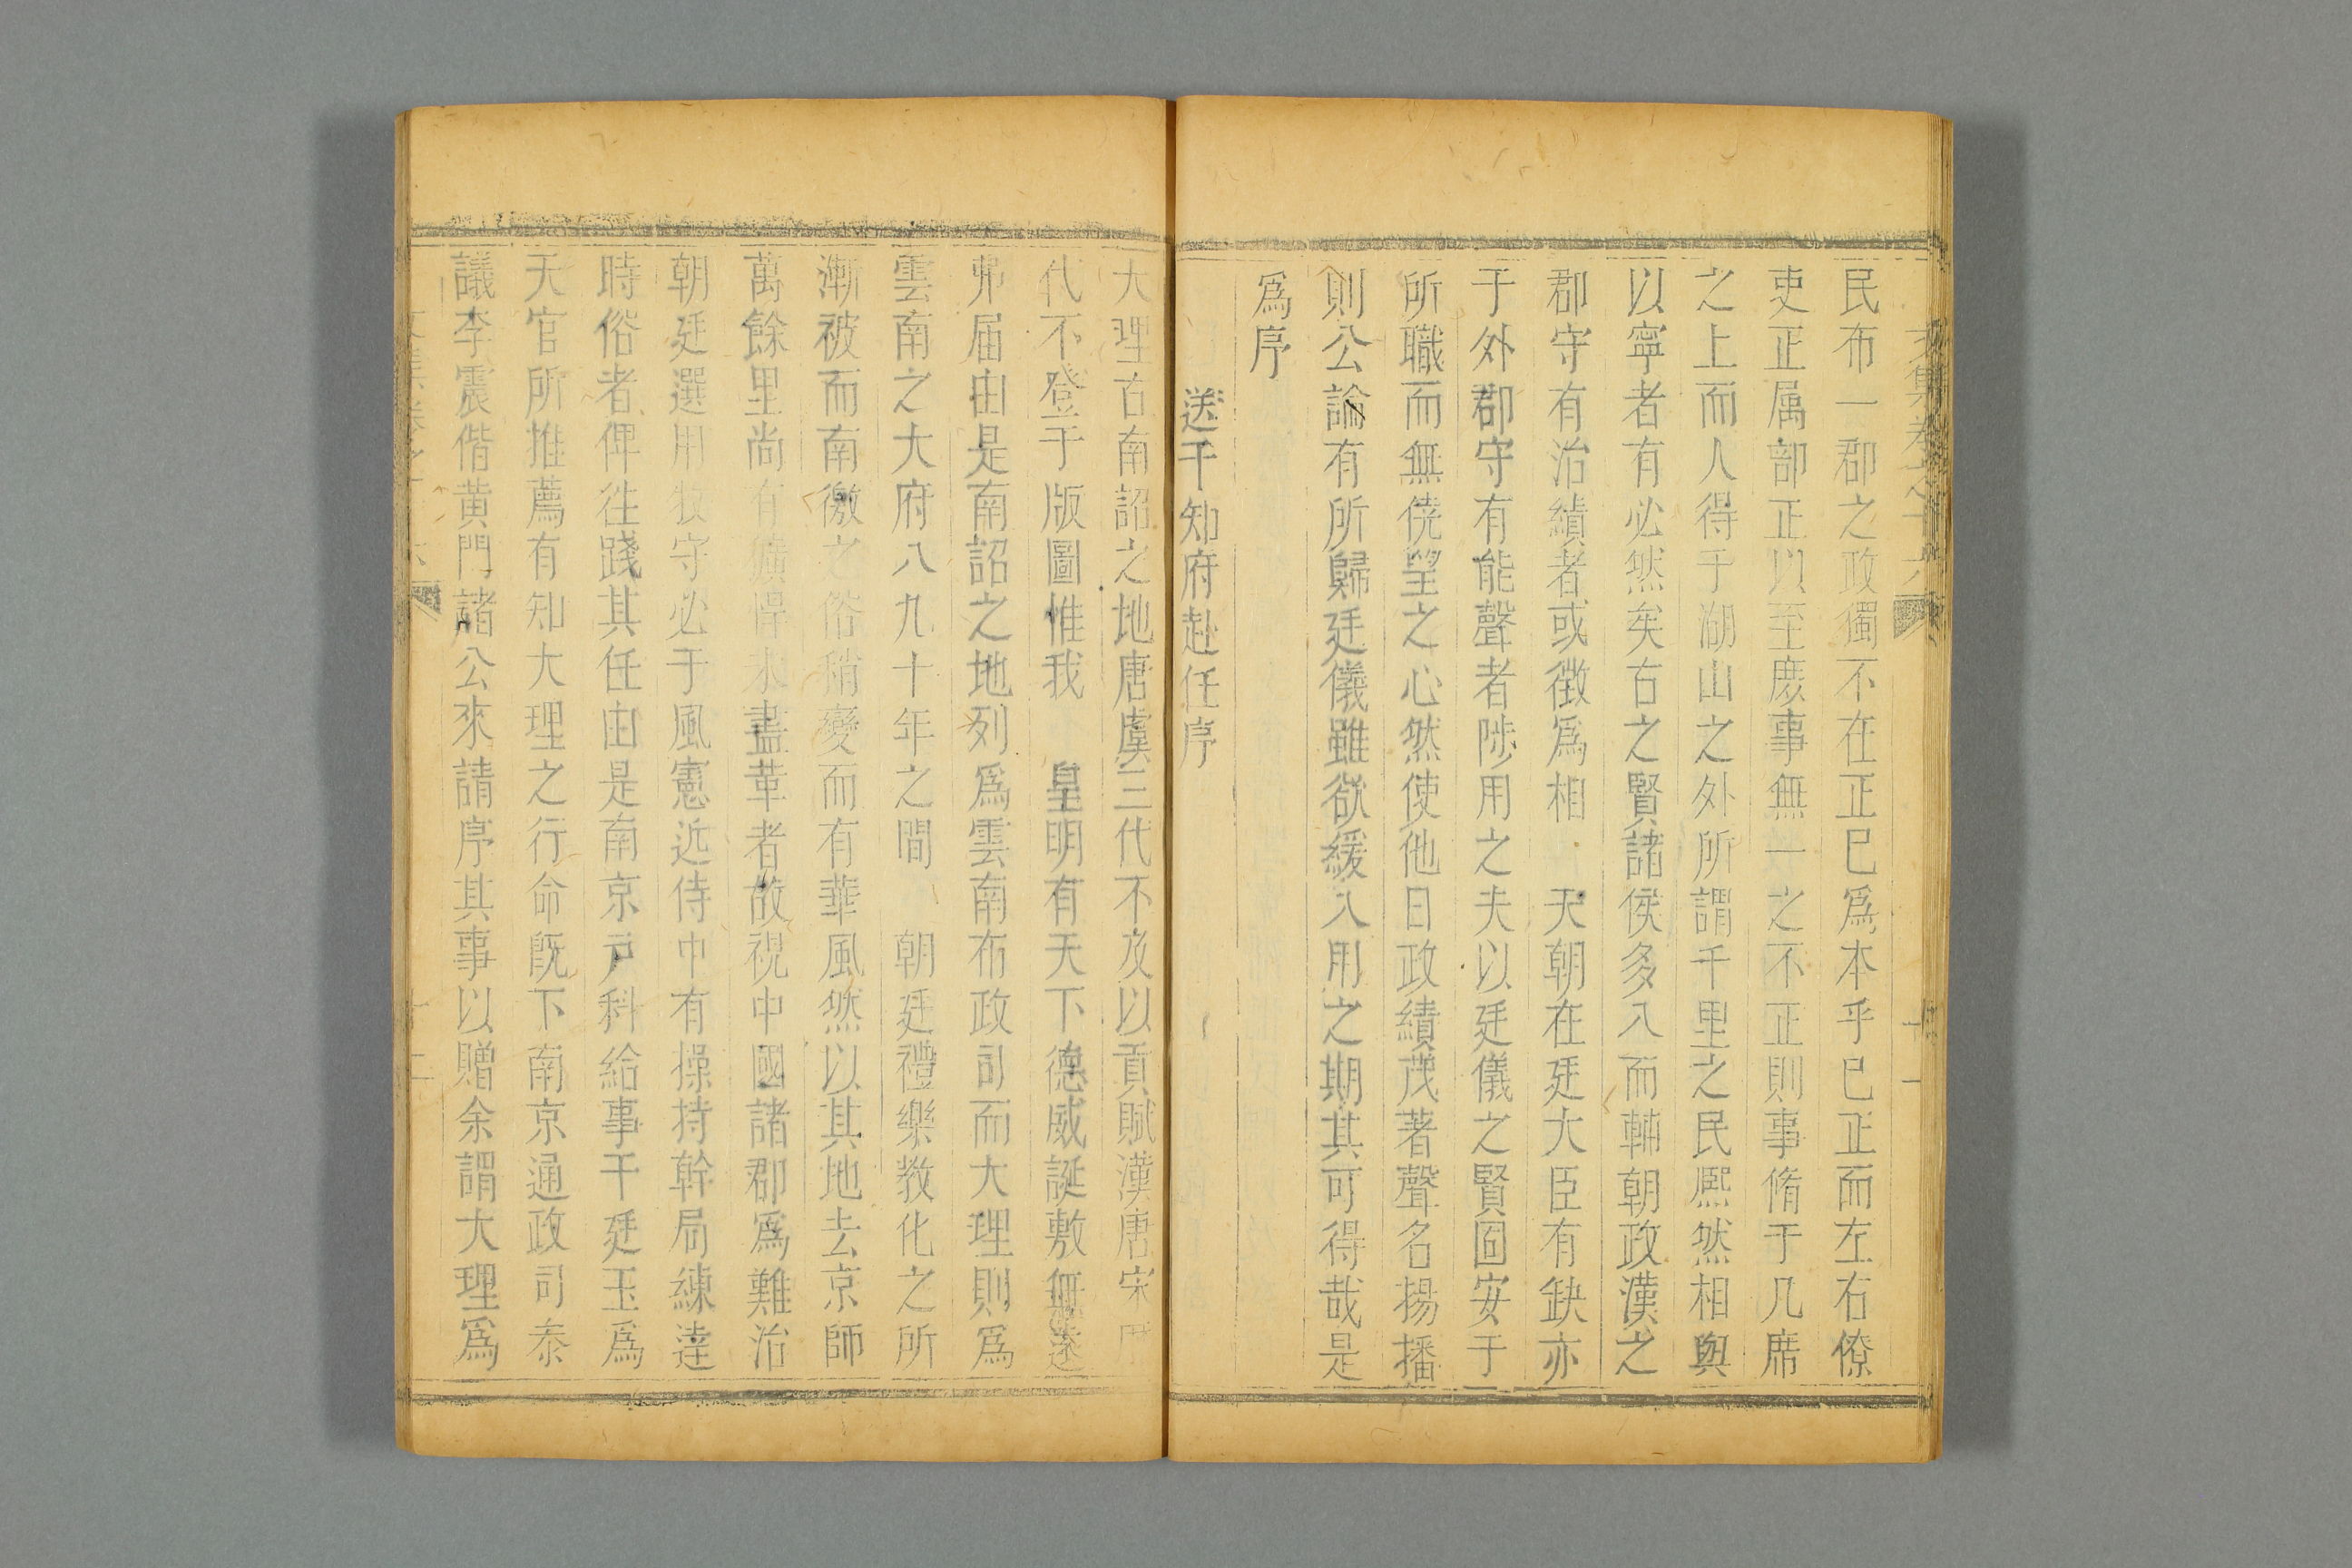 文集卷之十六
十一
民布一郡之政獨不在正巳爲本乎巳正而左右僚
吏正属部正以至庻事無一之不正則事脩于几席
之上而人得于湖山之外所謂千里之民熈然相與
以寧者有必然矣古之賢諸侯多入而輔朝政漢之
郡守有治績者或徴爲相 天朝在廷大臣有缺亦
于外郡守有能聲者陟用之夫以廷儀之賢固安于
所職而無僥望之心然使他日政績茂著聲名揚播
則公論有所歸廷儀雖欲緩入用之期其可得哉是
爲序
送千知府赴任序
大理古南詔之地唐虞三代不及以貢賦漢唐宋
代不登于版圖惟我 皇明有天下德威誕敷無遠
弗届由是南詔之地列爲雲南布政司而大理則爲
雲南之大府八九十年之間 朝廷禮樂教化之所
漸被而南徼之俗稍變而有華風然以其地去京師
萬餘里尚有獷悍未盡革者故視中國諸郡爲難治
朝廷選用牧守必于風憲近侍中有操持幹局練達
時俗者俾往踐其任由是南京户科給事干廷玉爲
天官所推薦有知大理之行命既下南京通政司叅
議李震偕黄門諸公來請序其事以贈余謂大理爲
十二